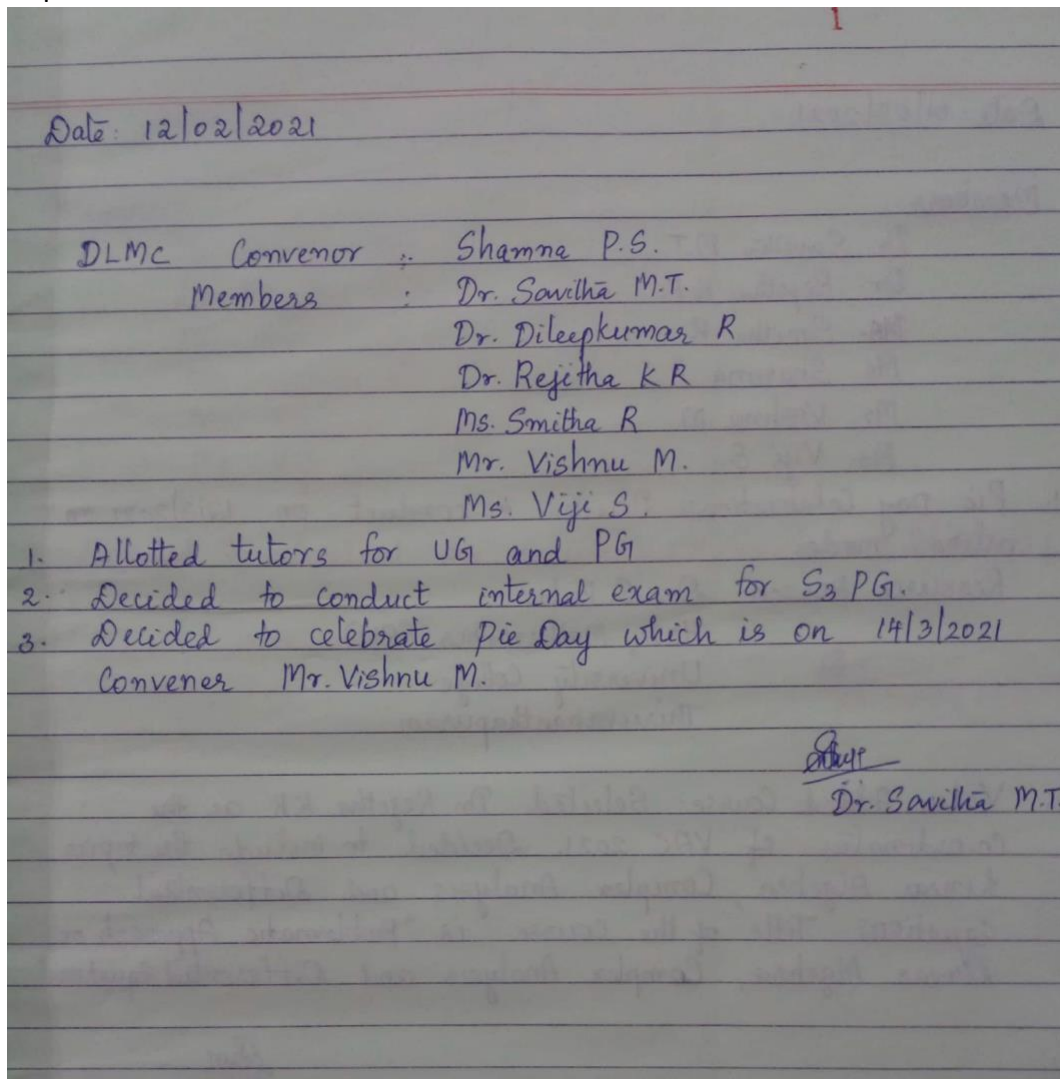 1
Date: 12/02/2021
DLMC Convenor : Shamna P.S.
Members : Dr. Savitha M.T.
Dr. Dileepkumar R
Dr. Rejitha K R
Ms. Smitha R
Mr. Vishnu M.
Ms. Viji S.
1. Allotted tutors for UG and PG
2. Decided to conduct internal exam for S3 PG.
3. Decided to celebrate Pie Day which is on 14/3/2021
Convener Mr. Vishnu M.
Dr. Savitha M.T.